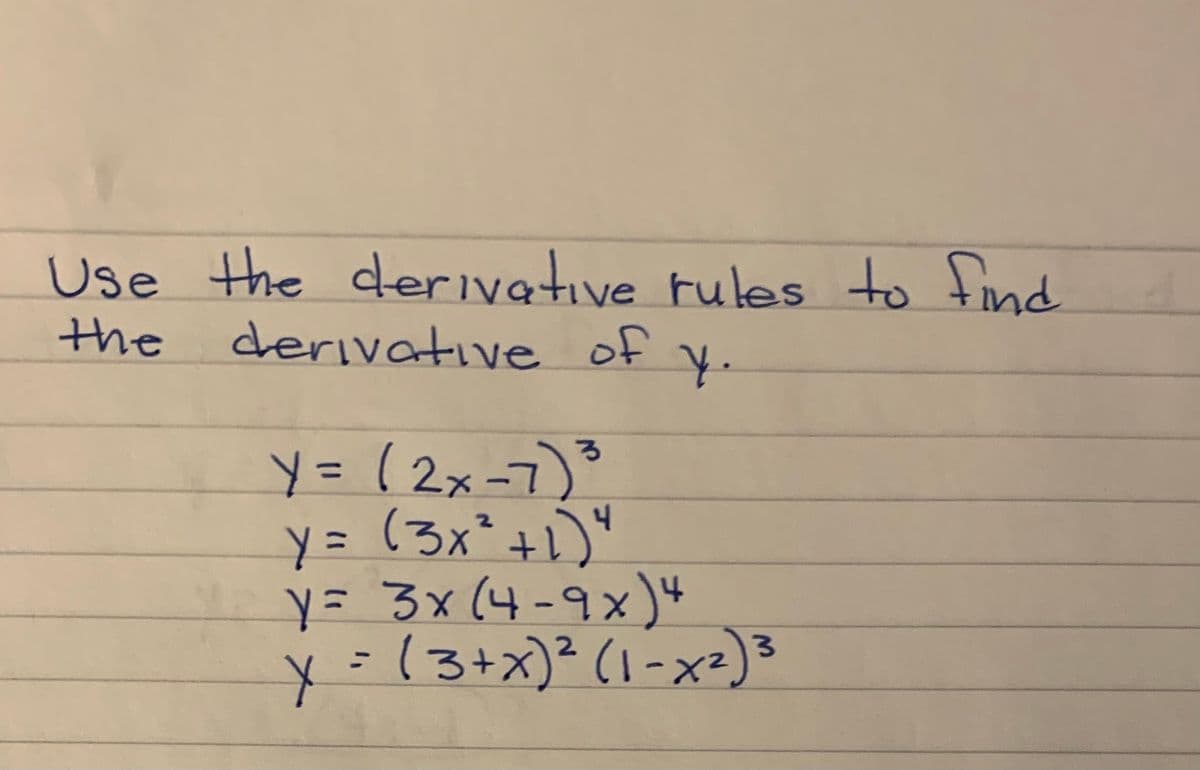 Use the derivative rules to find
the derivative of y.
y = (2x-7)³
y = (3x²+1)⁴
y = 3x(4-9x)⁴
y = (3+x)² (1-x²)³